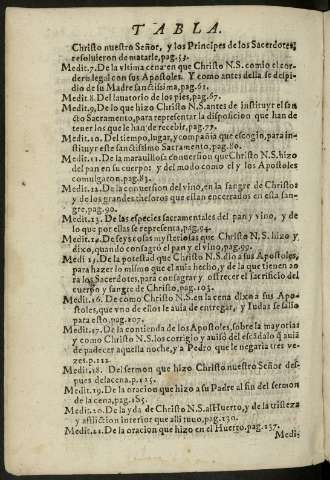 TABLA.
Christo nuestro Señor, y los Principes de los Sacerdotes
resoluieron de matarle, pag.53.
Medit.7. De la vltima cena en que Christo N.S. comio el cor-
dero legal con sus Apostoles. Y como antes della se despi-
dio de su Madre sanctissima, pag.61.
Medit.8. Del lauatorio de los pies, pag.67.
Medit.9. De lo que hizo Christo N.S. antes de instituyr el san
cto Sacramento, para representar la disposicion que han de
tener los que le han de recebir, pag.77.
Medit.10. Del tiempo, lugar, y compañia que escogio, para in-
stituyr este sanctissimo Sacramento, pag.80.
Medit.11. De la marauillosa conuersion que Christo N.S. hizo
del pan en su cuerpo: y del modo como el y los Apostoles
comulgaron, pag.83.
Medit.12. De la conuersion del vino, en la sangre de Christo:
y de los grandes thesoros que estan encerrados en esta san-
gre, pag.90.
Medit.13. De las especies sacramentales del pan y vino, y de
lo que por ellas se representa, pag.94.
Medit.14. De seys cosas mysteriosas que Christo N.S. hizo y
dixo, quando consagro el pan y el vino, pag.99.
Medi.15. De la potestad que Christo N.S. dio a sus Apostoles,
para hazer lo mismo que el auia hecho, y de la que tienen ao
ra los Sacerdotes, para consagrar y offrecer el sacrificio del
cuerpo y sangre de Christo, pag.103.
Medit.16. De como Christo N.S. en la cena dixo a sus Apo-
stoles, que vno de ellos le auia de entregar, y Iudas se salio
para esto, pag.107.
Medit.17. De la contienda de los Apostoles, sobre la mayoria:
y como Christo N.S. los corrigio y auiso del escãdalo q̃ auiã
de padecer aquella noche, y a Pedro que le negaria tres ve-
zes. p.112.
Medit.18. Del sermon que hizo Christo nuestro Señor des-
pues de la cena. p.125.
Medit.19. De la oracion que hizo a su Padre al fin del sermon
de la cena, pag.185.
Medit.20. De la yda de Christo N.S. al Huerto, y de la tristeza
y affliction interior que alli tuuo, pag.130.
Medit.21. De la oracion que hizo en el Huerto, pag.137.
Medit-